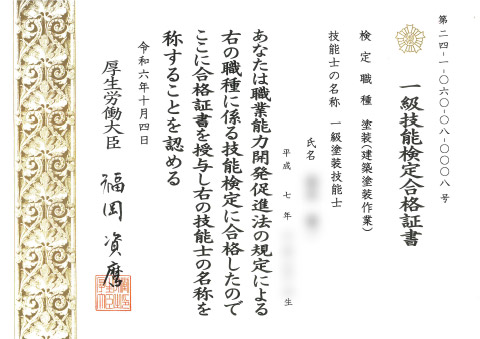 第二四-一-〇六〇-〇八-〇〇〇八号
一級技能検定合格証書
検定職種 塗装(建築塗装作業)
技能士の名称 一級塗装技能士
氏名
平成 七 年 生
あなたは職業能力開発促進法の規定による
右の職種に係る技能検定に合格したので
ここに合格証書を授与し右の技能士の名称を
称することを認める
令和六年十月四日
厚生労働大臣 福岡資麿